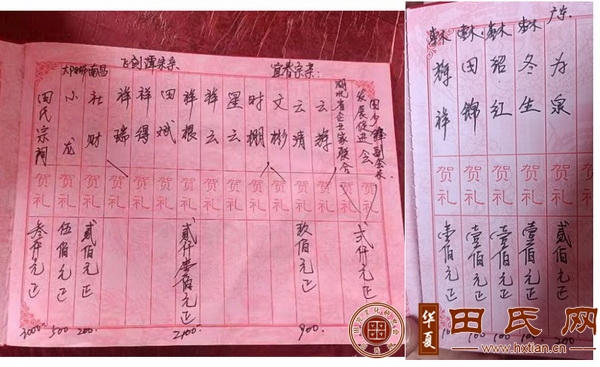 宜春宗亲:
发展促进会
湖北省企业家联合
贺礼
弍仟元正
云
贺礼
云清
贺礼
玖佰元正
900.
文彬
贺礼
时棚
贺礼
星云
贺礼
祥云
贺礼
祥根
贺礼
贰仟壹佰元正
2100.
田斌
贺礼
祥得
贺礼
祥瑞
贺礼
南昌
社财
贺礼
贰佰元正
200.
小龙
贺礼
伍佰元正
500
田氏宗祠
贺礼
叁仟元正
3000
广东.
为泉
贺礼
贰佰元正
200
冬生
贺礼
壹佰元正
100
绍红
贺礼
壹佰元正
100
田锦
贺礼
壹佰元正
100
祥
贺礼
壹佰元正
华夏
田氏网
www.hxtian.cn